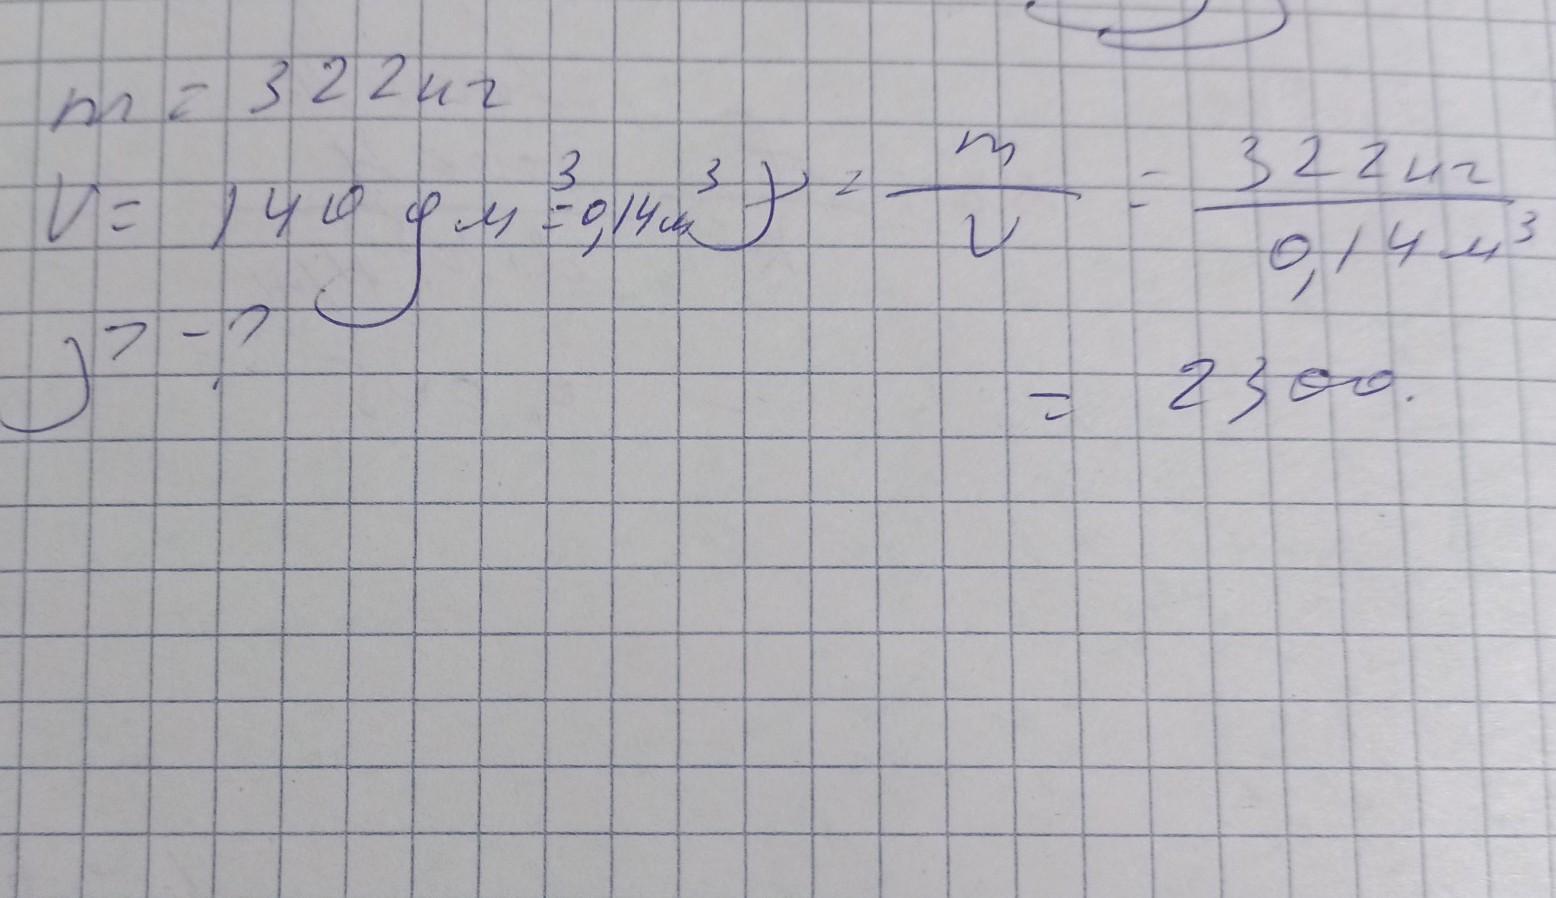 m = 322кг
V = 140 дм³ = 0,14м³
ρ - ?
ρ = m/V = 322кг/0,14м³
= 2300.